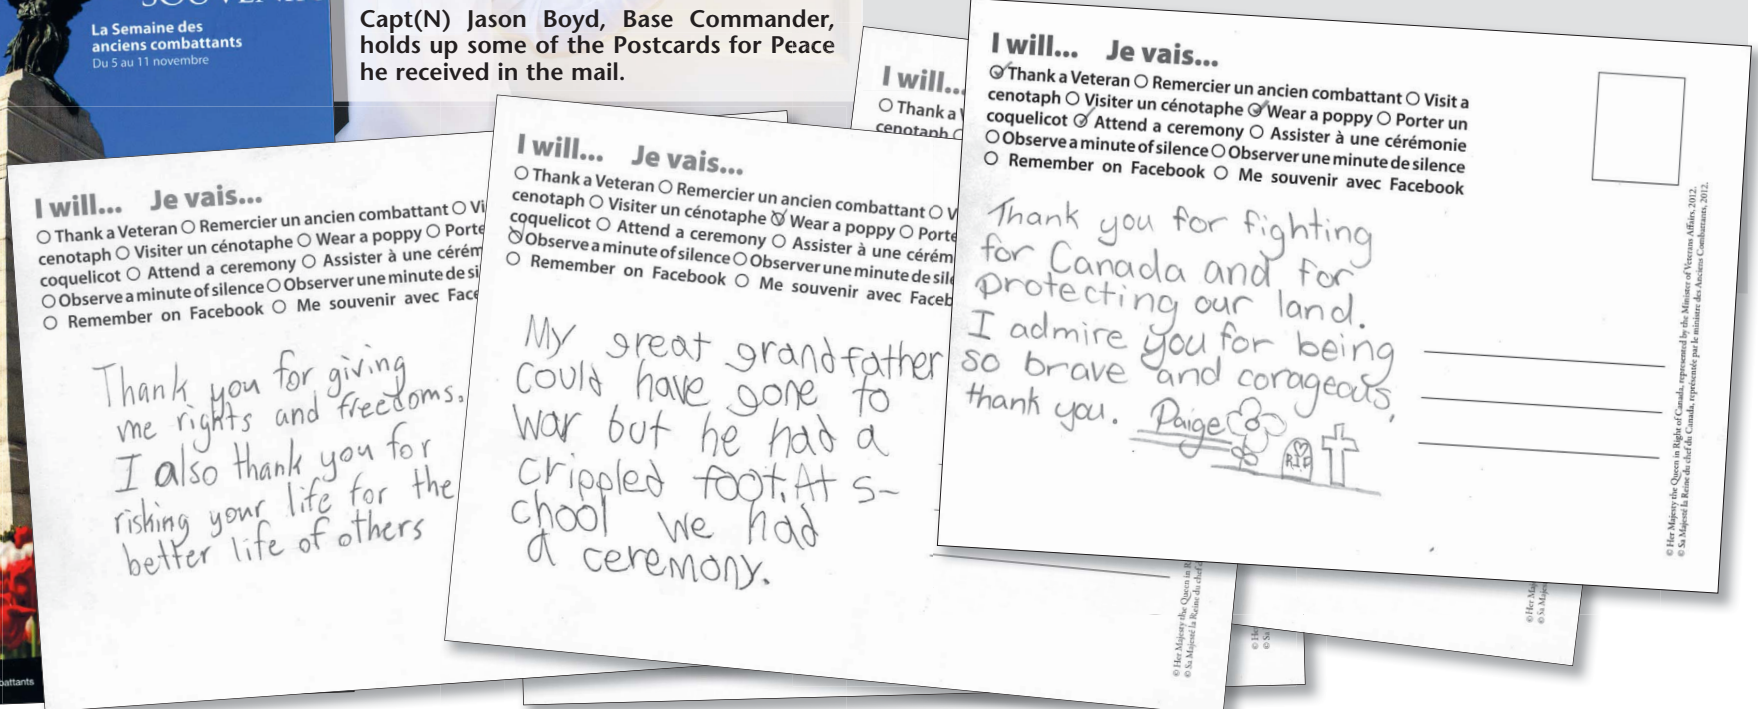 SOUVENIR
La Semaine des
anciens combattants
Du 5 au 11 novembre
Capt(N) Jason Boyd, Base Commander,
holds up some of the Postcards for Peace
he received in the mail.
I will... Je vais...
O Thank a Veteran O Remercier un ancien combattant O Vi
cenotaph O Visiter un cénotaphe O Wear a poppy O Porte
coquelicot O Attend a ceremony O Assister à une cérém
O Observe a minute of silence O Observer une minute de si
O Remember on Facebook O Me souvenir avec Face
Thank you for giving
me rights and freedoms.
I also thank you for
risking your life for the
better life of others
I will... Je vais...
O Thank a Veteran O Remercier un ancien combattant O V
cenotaph O Visiter un cénotaphe O Wear a poppy O Porte
coquelicot O Attend a ceremony O Assister à une cérém
O Observe a minute of silence O Observer une minute de sile
O Remember on Facebook O Me souvenir avec Faceb
My great grandfather
could have gone to
war but he had a
crippled foot. At s-
chool we had
a ceremony.
© Her Majesty the Queen in R
© Sa Majesté la Reine du chef
I will...
O Thank a V
cenotaph O
I will... Je vais...
O Thank a Veteran O Remercier un ancien combattant O Visit a
cenotaph O Visiter un cénotaphe O Wear a poppy O Porter un
coquelicot O Attend a ceremony O Assister à une cérémonie
O Observe a minute of silence O Observer une minute de silence
O Remember on Facebook O Me souvenir avec Facebook
Thank you for fighting
for Canada and for
protecting our land.
I admire you for being
so brave and corageous,
thank you. Paige
RIP
© Her Majesty the Queen in Right of Canada, represented by the Minister of Veterans Affairs, 2012.
© Sa Majesté la Reine du chef du Canada, représentée par le ministre des Anciens Combattants, 2012.
© Her Maj
© Sa Majes
© He
© Sa
battants